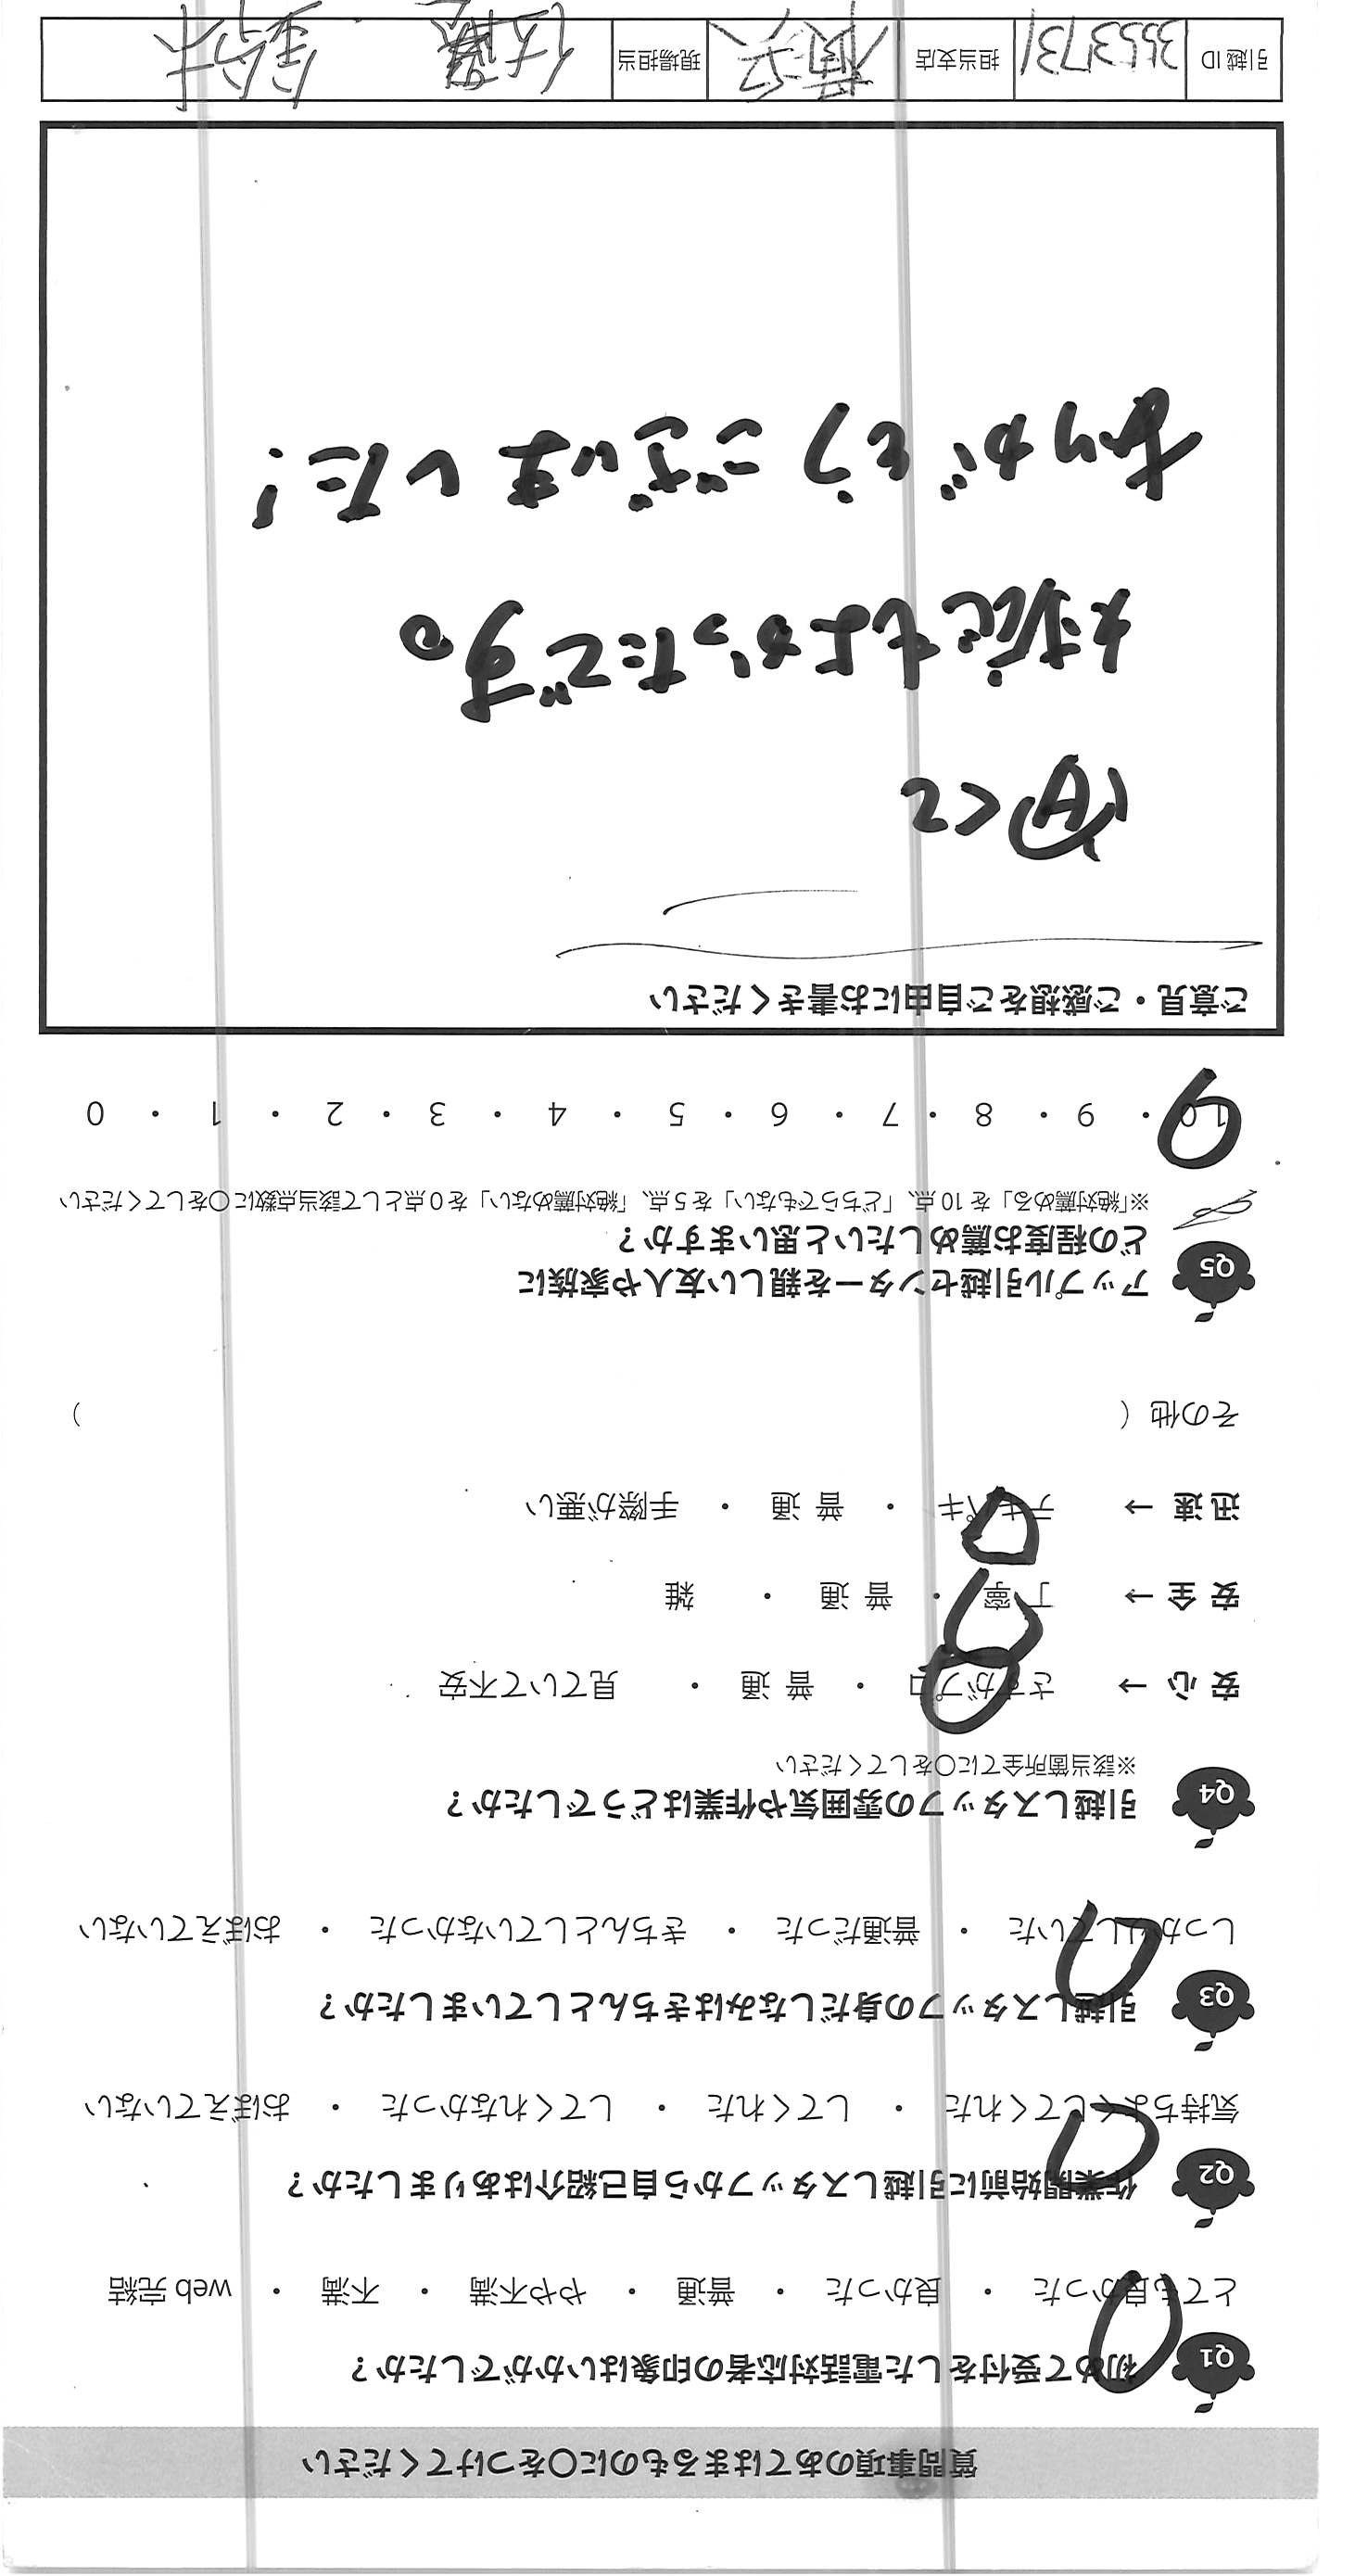 質問事項のあてはまるものに〇をつけてください
Q1 初めて受付をした電話対応者の印象はいかがでしたか？
とても良かった ・ 良かった ・ 普通 ・ やや不満 ・ 不満 ・ web 完結
Q2 作業開始前に引越しスタッフから自己紹介はありましたか？
気持ちよくしてくれた ・ してくれた ・ してくれなかった ・ おぼえていない
Q3 引越しスタッフの身だしなみはきちんとしていましたか？
しっかりしていた ・ 普通だった ・ きちんとしていなかった ・ おぼえていない
Q4 引越しスタッフの雰囲気や作業はどうでしたか？
※該当箇所全てに〇をしてください
安心 → さすがプロ ・ 普通 ・ 見ていて不安
安全 → 丁寧 ・ 普通 ・ 雑
迅速 → テキパキ ・ 普通 ・ 手際が悪い
その他（ ）
Q5 アップル引越センターを親しい友人や家族に
どの程度お薦めしたいと思いますか？
※「絶対薦める」を 10 点、「どちらでもない」を 5 点、「絶対薦めない」を 0 点として該当点数に〇をしてください
10 ・ 9 ・ 8 ・ 7 ・ 6 ・ 5 ・ 4 ・ 3 ・ 2 ・ 1 ・ 0
ご意見・ご感想をご自由にお書きください
くて
とてもよかったです。
ありがとうございました!
引越 ID 3553731 担当支店 横浜 現場担当 佐藤 鈴木